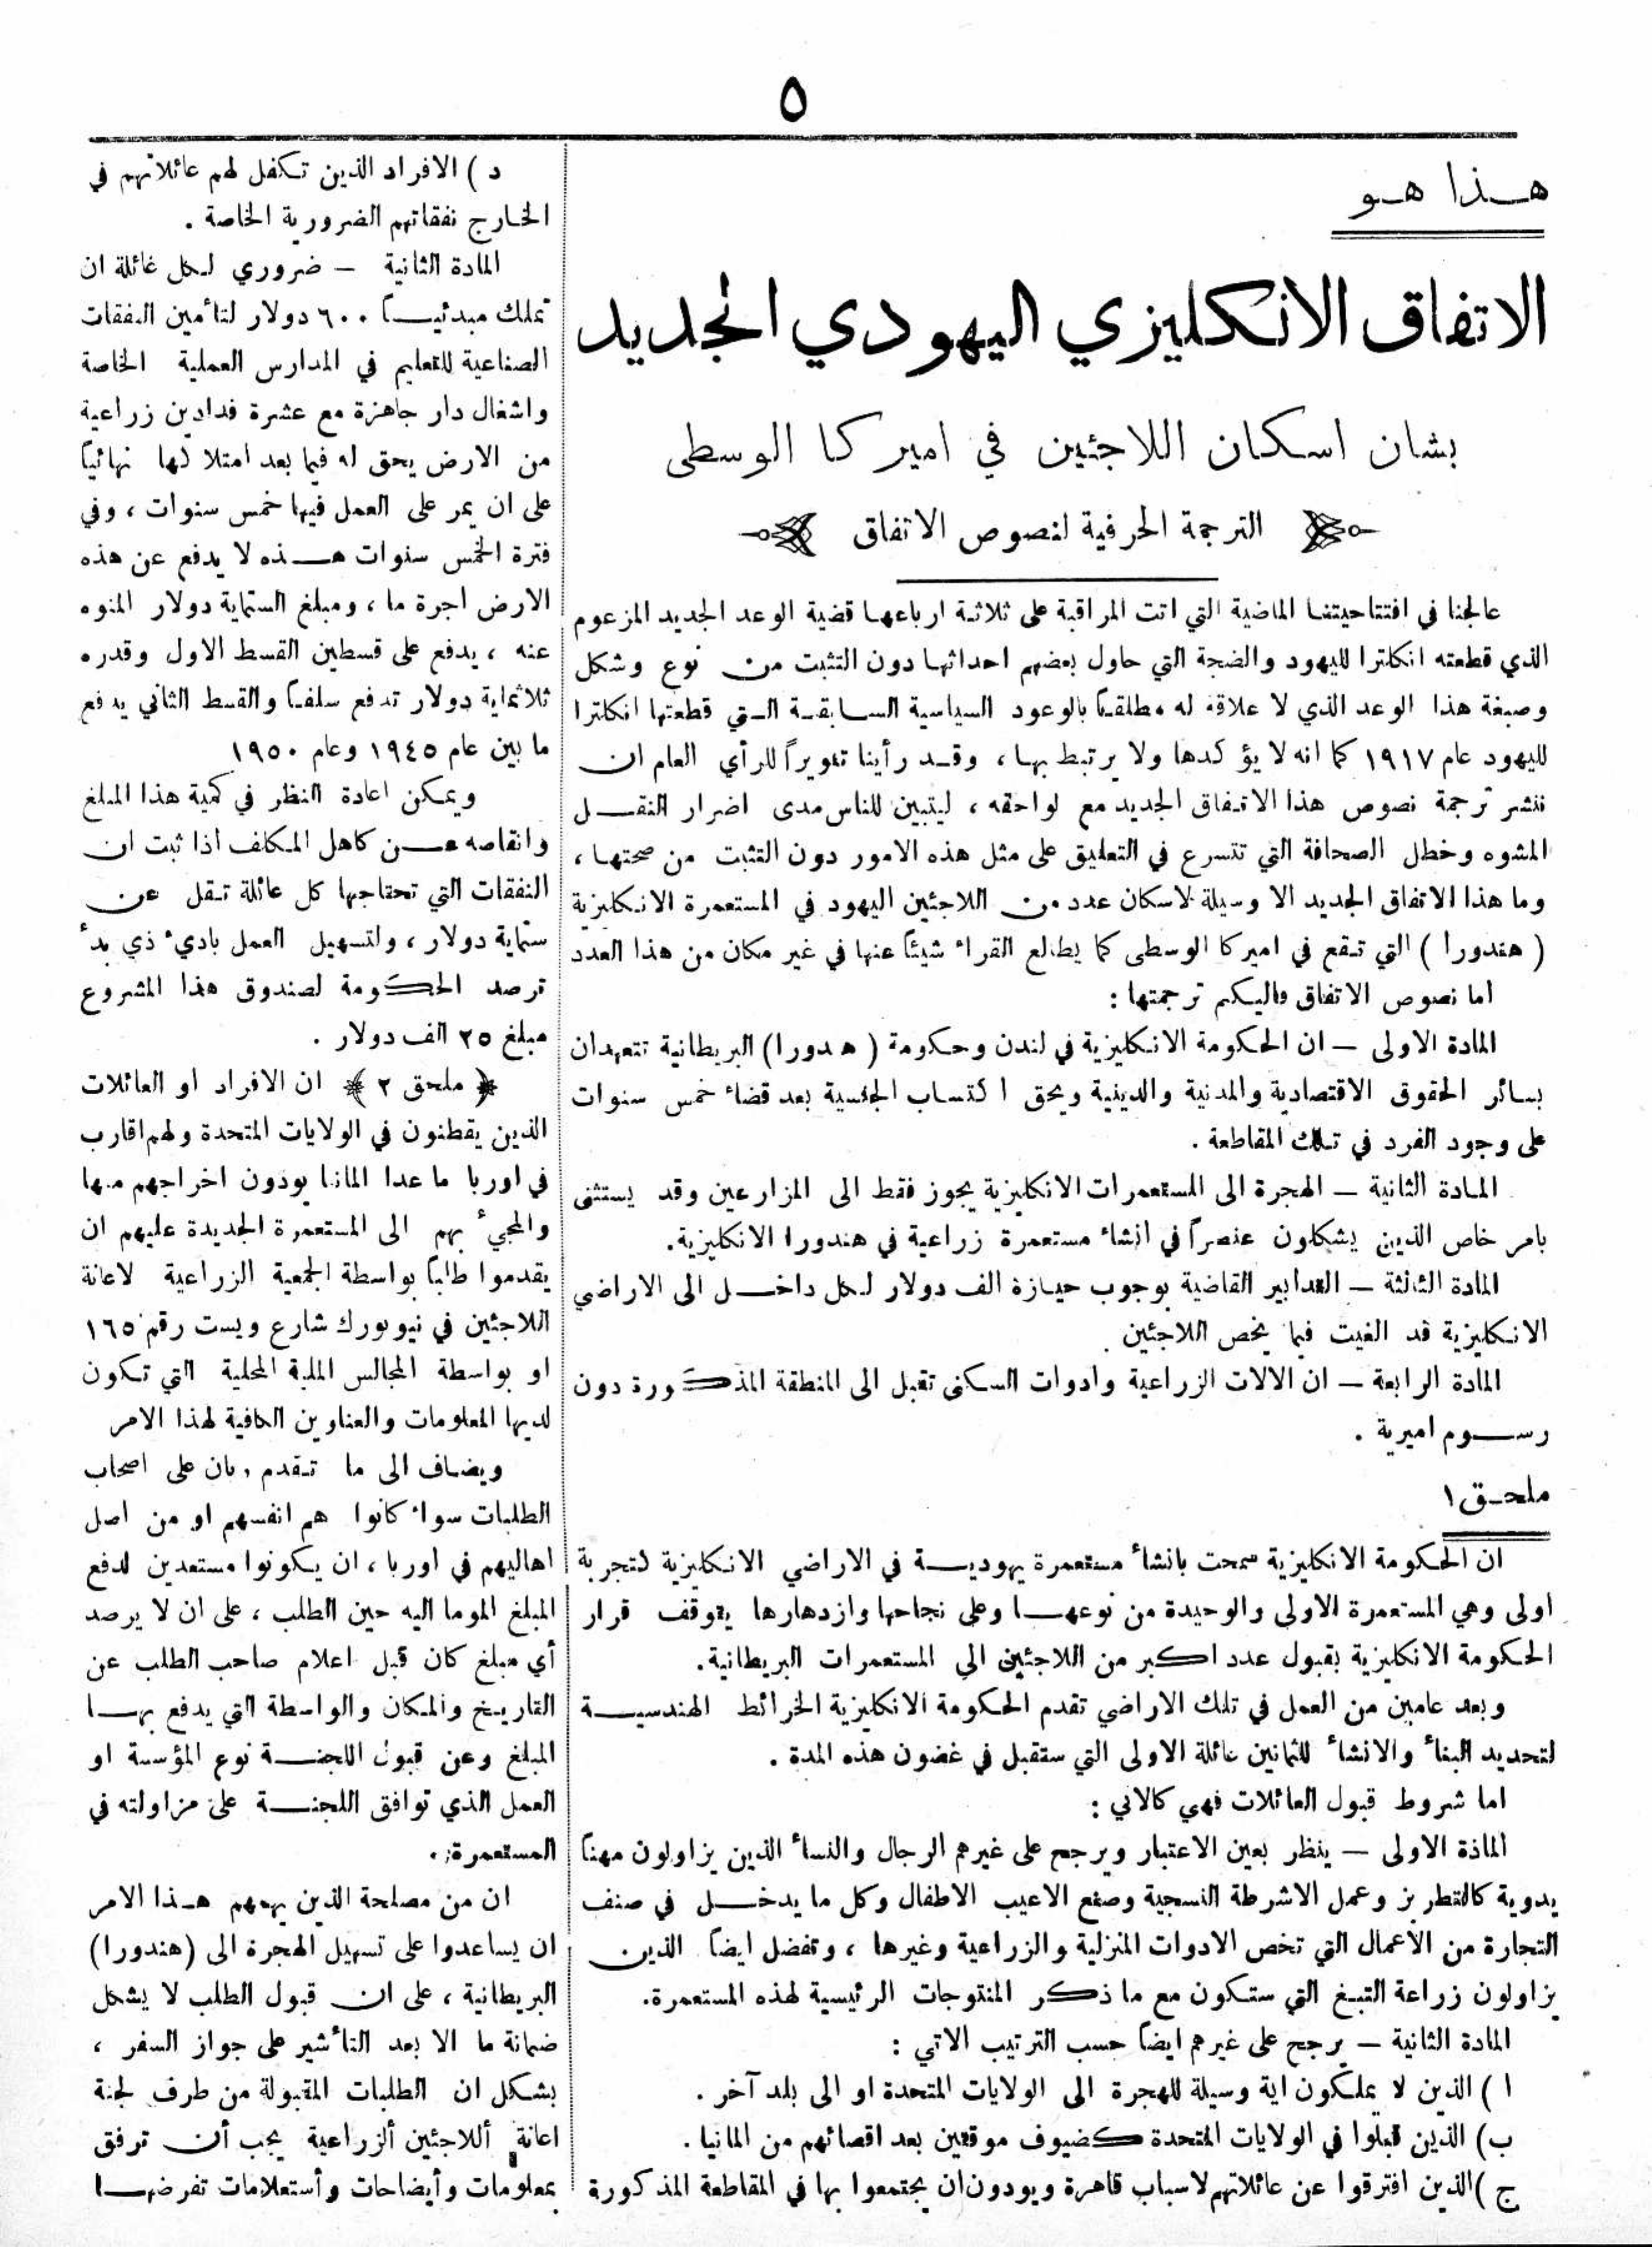 ٥
هـذا هـو
الاتفاق الانكليزي اليهودي الجديد
بشان اسكان اللاجئين في اميركا الوسطى
الترجمة الحرفية لنصوص الاتفاق
عالجنا في افتتاحيتنا الماضية التي اتت المراقبة على ثلاثة ارباعها قضية الوعد الجديد المزعوم
الذي قطعته انكلترا لليهود والضجة التي حاول بعضهم احداثها دون التثبت من نوع وشكل
وصبغة هذا الوعد الذي لا علاقة له مطلقاً بالوعود السياسية السابقة التي قطعتها انكلترا
لليهود عام ١٩١٧ كما انه لا يؤكدها ولا يرتبط بها، وقد رأينا تنويراً للرأي العام ان
ننشر ترجمة نصوص هذا الاتفاق الجديد مع لواحقه ، ليتبين للناس مدى اضرار النقل
المشوه وخطل الصحافة التي تتسرع في التعليق على مثل هذه الامور دون التثبت من صحتها ،
وما هذا الاتفاق الجديد الا وسيلة لاسكان عدد من اللاجئين اليهود في المستعمرة الانكليزية
( هندورا ) التي تقع في اميركا الوسطى كما يطالع القراء شيئاً عنها في غير مكان من هذا العدد
اما نصوص الاتفاق فاليكم ترجمتها :
المادة الاولى — ان الحكومة الانكليزية في لندن وحكومة ( هدورا) البريطانية تتعهدان
بسائر الحقوق الاقتصادية والمدنية والدينية ويحق اكتساب الجنسية بعد قضاء خمس سنوات
على وجود الفرد في تلك المقاطعة .
المادة الثانية — الهجرة الى المستعمرات الانكليزية يجوز فقط الى المزارعين وقد يستثنى
بامر خاص الذين يشكلون عنصراً في انشاء مستعمرة زراعية في هندورا الانكليزية.
المادة الثالثة — التدابير القاضية بوجوب حيازة الف دولار لكل داخل الى الاراضي
الانكليزية قد الغيت فيما يخص اللاجئين .
المادة الرابعة — ان الالات الزراعية وادوات السكنى تقبل الى المنطقة المذكورة دون
رسوم اميرية .
ملحق ١
ان الحكومة الانكليزية سمحت بانشاء مستعمرة يهودية في الاراضي الانكليزية لتجربة
اولى وهي المستعمرة الاولى والوحيدة من نوعها وعلى نجاحها وازدهارها يتوقف قرار
الحكومة الانكليزية بقبول عدد اكبر من اللاجئين الي المستعمرات البريطانية.
وبعد عامين من العمل في تلك الاراضي تقدم الحكومة الانكليزية الخرائط الهندسية
لتحديد البناء والانشاء للثمانين عائلة الاولى التي ستقبل في غضون هذه المدة .
اما شروط قبول العائلات فهي كالاتي :
الماذة الاولى — ينظر بعين الاعتبار ويرجح على غيرهم الرجال والنساء الذين يزاولون مهناً
يدوية كالتطريز وعمل الاشرطة النسجية وصنع الاعيب الاطفال وكل ما يدخل في صنف
التجارة من الأعمال التي تخص الادوات المنزلية والزراعية وغيرها ، وتفضل ايضاً الذين
يزاولون زراعة التبغ التي ستكون مع ما ذكر المنتوجات الرئيسية لهذه المستعمرة.
المادة الثانية — يرجح على غيرهم ايضاً حسب الترتيب الاتي :
ا ) الذين لا يملكون اية وسيلة للهجرة الى الولايات المتحدة او الى بلد آخر .
ب) الذين قبلوا في الولايات المتحدة كضيوف موقتين بعد اقصائهم من المانيا .
ج )الذين افترقوا عن عائلاتهم لاسباب قاهرة ويودون ان يجتمعوا بها في المقاطعة المذكورة
د ) الافراد الذين تكفل لهم عائلاتهم في
الخارج نفقاتهم الضرورية الخاصة .
المادة الثانية — ضروري لكل غائلة ان
تملك مبدئياً ٦٠٠ دولار لتأمين النفقات
الصناعية للتعليم في المدارس العملية الخاصة
واشغال دار جاهزة مع عشرة فدادين زراعية
من الارض يحق له فيما بعد امتلاكها نهائياً
على ان يمر على العمل فيها خمس سنوات ، وفي
فترة الخمس سنوات هذه لا يدفع عن هذه
الارض اجرة ما ، ومبلغ الستماية دولار المنوه
عنه ، يدفع على قسطين القسط الاول وقدره
ثلاثماية دولار تدفع سلفاً والقسط الثاني يدفع
ما بين عام ١٩٤٥ وعام ١٩٥٠
ويمكن اعادة النظر في كمية هذا المبلغ
وانقاصه عن كاهل المكلف اذا ثبت ان
النفقات التي تحتاجها كل عائلة تقل عن
ستماية دولار ، ولتسهيل العمل باديء ذي بدء
ترصد الحكومة لصندوق هذا المشروع
مبلغ ٢٥ الف دولار .
﴿ ملحق ٢ ﴾ ان الافراد او العائلات
الذين يقطنون في الولايات المتحدة ولهم اقارب
في اوربا ما عدا المانيا يودون اخراجهم منها
والمجيء بهم الى المستعمرة الجديدة عليهم ان
يقدموا طلباً بواسطة الجمعية الزراعية لاعانة
اللاجئين في نيويورك شارع ويست رقم ١٦٥
او بواسطة المجالس الملية المحلية التي تكون
لديها المعلومات والعناوين الكافية لهذا الامر
ويضاف الى ما تقدم ، بان على اصحاب
الطلبات سواء كانوا هم انفسهم او من اصل
اهاليهم في اوربا ، ان يكونوا مستعدين لدفع
المبلغ الموما اليه حين الطلب ، على ان لا يرصد
أي مبلغ كان قبل اعلام صاحب الطلب عن
التاريخ والمكان والواسطة التي يدفع بها
المبلغ وعن قبول اللجنة نوع المؤسسة او
العمل الذي توافق اللجنة على مزاولته في
المستعمرة .
ان من مصلحة الذين يهمهم هذا الامر
ان يساعدوا على تسهيل الهجرة الى (هندورا)
البريطانية ، على ان قبول الطلب لا يشكل
ضمانة ما الا بعد التأشير على جواز السفر ،
بشكل ان الطلبات المقبولة من طرف لجنة
اعانة أللاجئين ألزراعية يجب أن ترفق
بمعلومات وأيضاحات وأستعلامات تفرضها